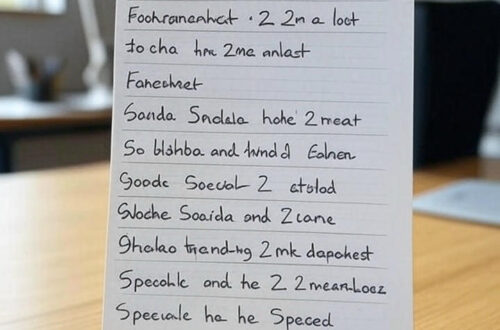 Foohranenhet · 2 2n a loot
to cha hre 2me anlast
Fanechret
Sanda Snolala hohe 2 meat
So blahba and hvnd d Eahen
goode Soecal 2 etolod
Sloche Soaida and 2 cane
ghalao trending 2 mk dapohest
Specohlc and he 2 2 mean-looz
Speciale ha he Speced